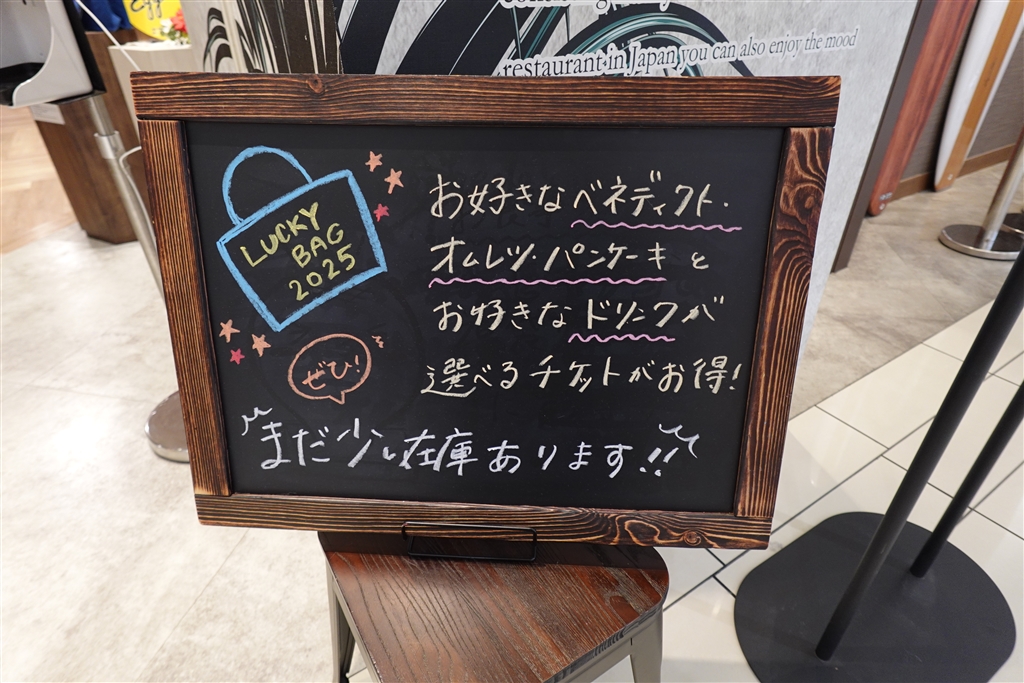 restaurant in Japan you can also enjoy the mood
LUCKY
BAG
2025
お好きなベネディクト・
オムレツ・パンケーキと
お好きなドリンクが
選べるチケットがお得!
ぜひ!
まだ少し在庫あります!!